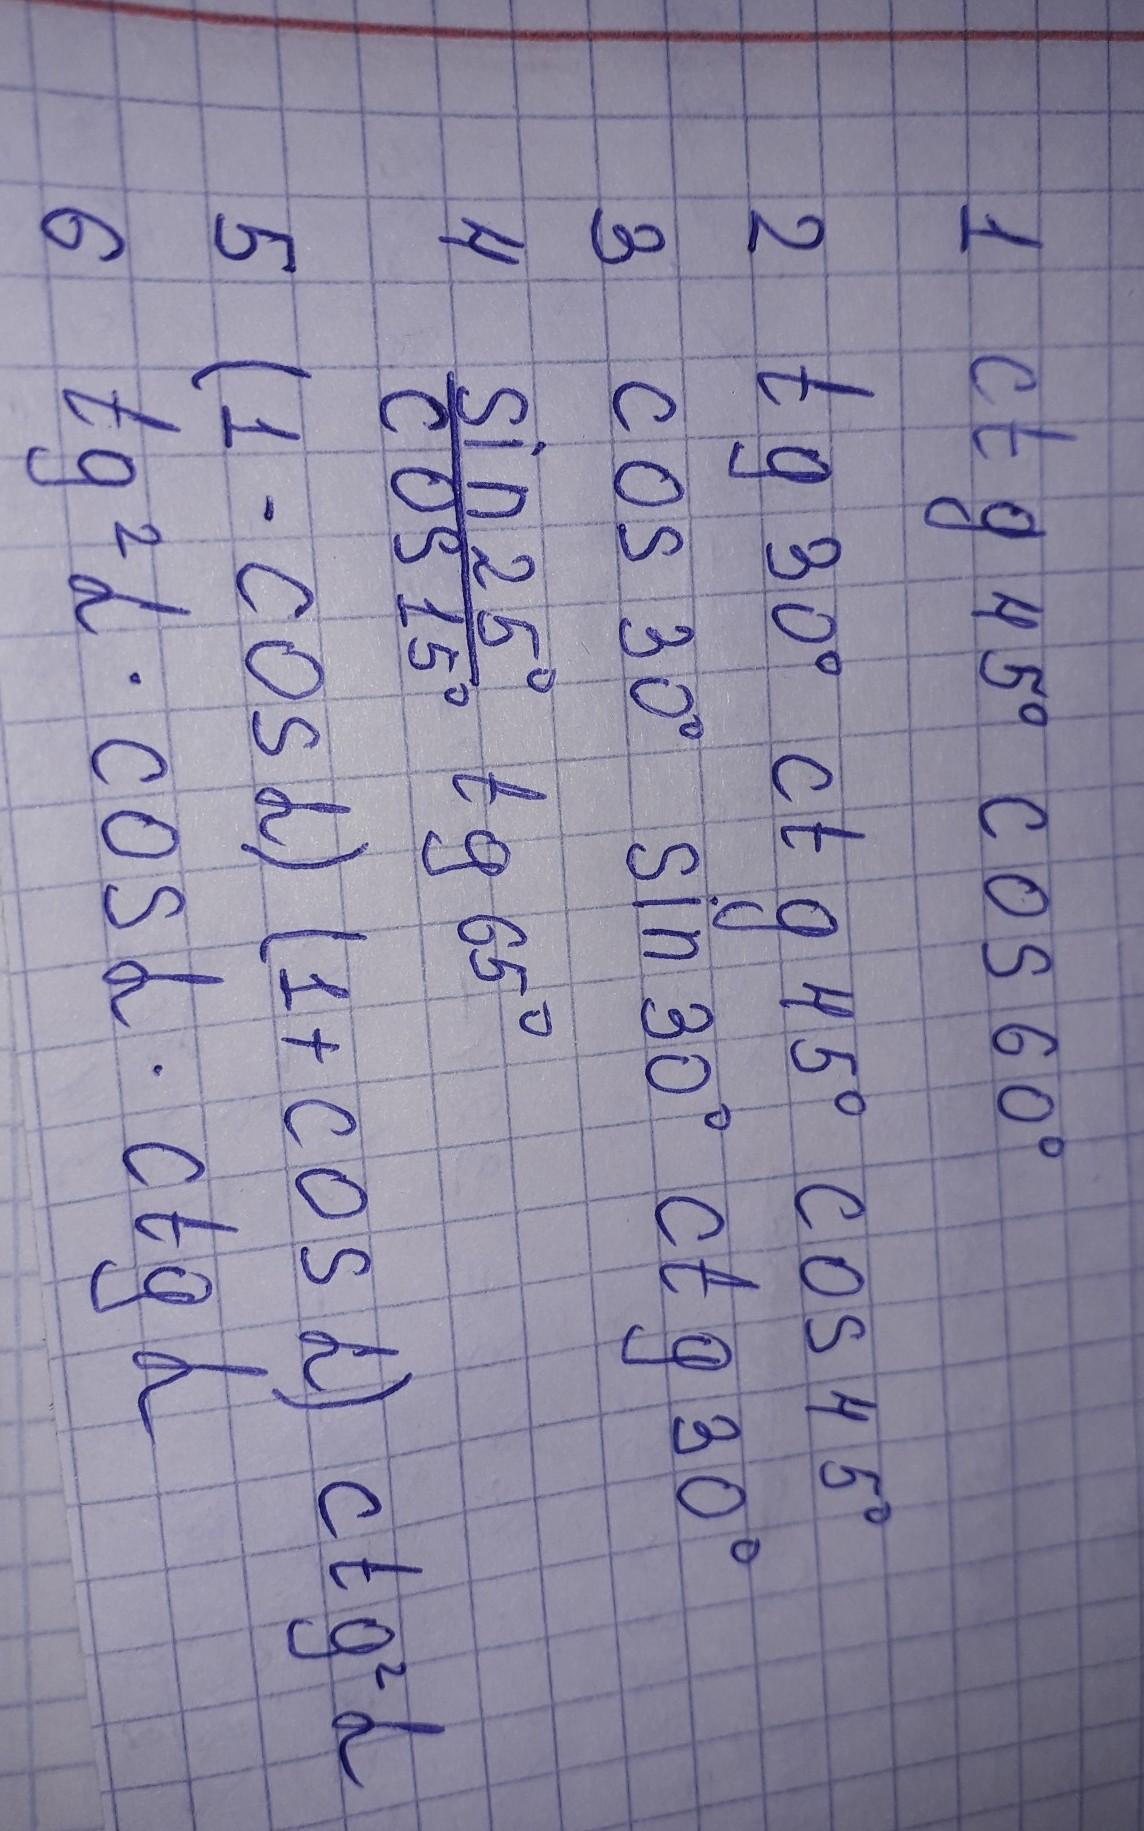 1 ctg 45° cos 60°
2 tg 30° ctg 45° cos 45°
3 cos 30° sin 30° ctg 30°
4 sin 25° / cos 15° tg 65°
5 (1 - cos α) (1 + cos α) ctg² α
6 tg² α · cos α · ctg α